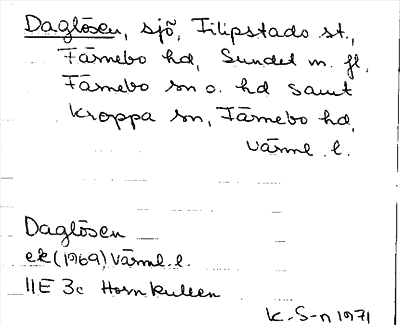 Daglösen, sjö, Filipstads st.,
Färnebo hd, Sundet m. fl.
Färnebo sn o. hd samt
Kroppa sn, Färnebo hd,
Värml. l.
Daglösen
ek (1969) Värml. l.
11E 3c Hornkullen
K. S-n 1971